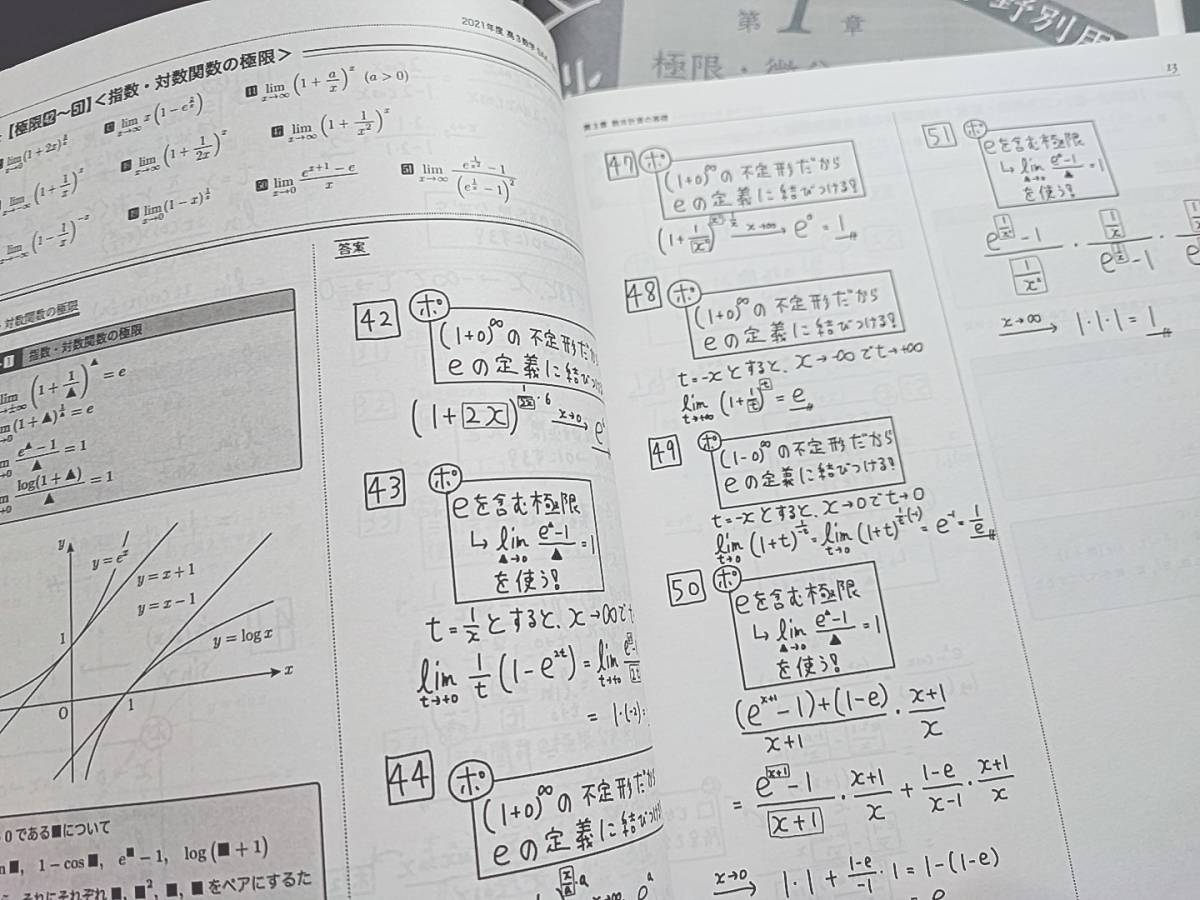 2021年度 高3数学
【極限42〜51】<指数・対数関数の極限>
lim x→0 (1+2x)^{3/x}
lim x→∞ x(1-e^{2/x})
lim x→∞ (1+a/x)^x (a>0)
lim x→-∞ (1+1/x)^x
lim x→∞ (1+1/2x)^x
47 lim x→∞ (1+1/x²)^x
lim x→-∞ (1-1/x)^{-x}
lim x→0 (1-x)^{1/x}
50 lim x→0 (e^{x+1}-e)/x
51 lim x→∞
対数関数の極限
1 指数・対数関数の極限
(1+1/▲)^▲ = e
(1+▲)^{1/▲} = e
(e^▲-1)/▲ = 1
log(1+▲)/▲ = 1
y
y=e^x
y=x+1
y=x-1
y=log x
1
0
1
x
0である■について
1-cos■, e^■-1, log(■+1)
それにそれぞれ■, ■², ■, ■をペアにするた
答案
42 ポ
(1+0)^∞の不定形だから
eの定義に結びつける
(1+2x)^{1/2x・6} x→0 e
43 ポ
eを含む極限
↳ lim ▲→0 (e^▲-1)/▲ = 1
を使う!
t=1/xとすると、x→∞でt
lim t→+0 1/t (1-e^{2t}) = lim t→+0
= 1・(-2)
44 ポ
(1+0)^∞の不定形だから
eの定義に結びつける
第1章
極限・微分
野別
13
47 ポ
(1+0)^∞の不定形だから
eの定義に結びつける!
(1+1/x²)^{x²・1/x} x→∞ e^0 = 1
48 ポ
(1+0)^∞の不定形だから
eの定義に結びつける!
t=-xとすると、x→-∞でt→+∞
lim t→+∞ (1+1/t)^t = e
49 ポ
(1-0)^∞の不定形だから
eの定義に結びつける!
t=-xとすると、x→0でt→0
lim t→0 (1+t)^{-1/t} = lim t→0 (1+t)^{1/t・(-1)} = e^{-1} = 1/e
50 ポ
eを含む極限
↳ lim ▲→0 (e^▲-1)/▲ = 1
を使う!
((e^{x+1}-1)+(1-e))/(x+1) ・ (x+1)/x
= (e^{x+1}-1)/(x+1) ・ (x+1)/x + (1-e)/(x-1) ・ (x+1)/x
x→0 1・1 + (1-e)/(-1)・1 = 1-(1-e)
51 ポ
eを含む極限
↳ lim ▲→0 (e^▲-1)/▲ = 1
を使う!
x→∞ 1・1・1 = 1